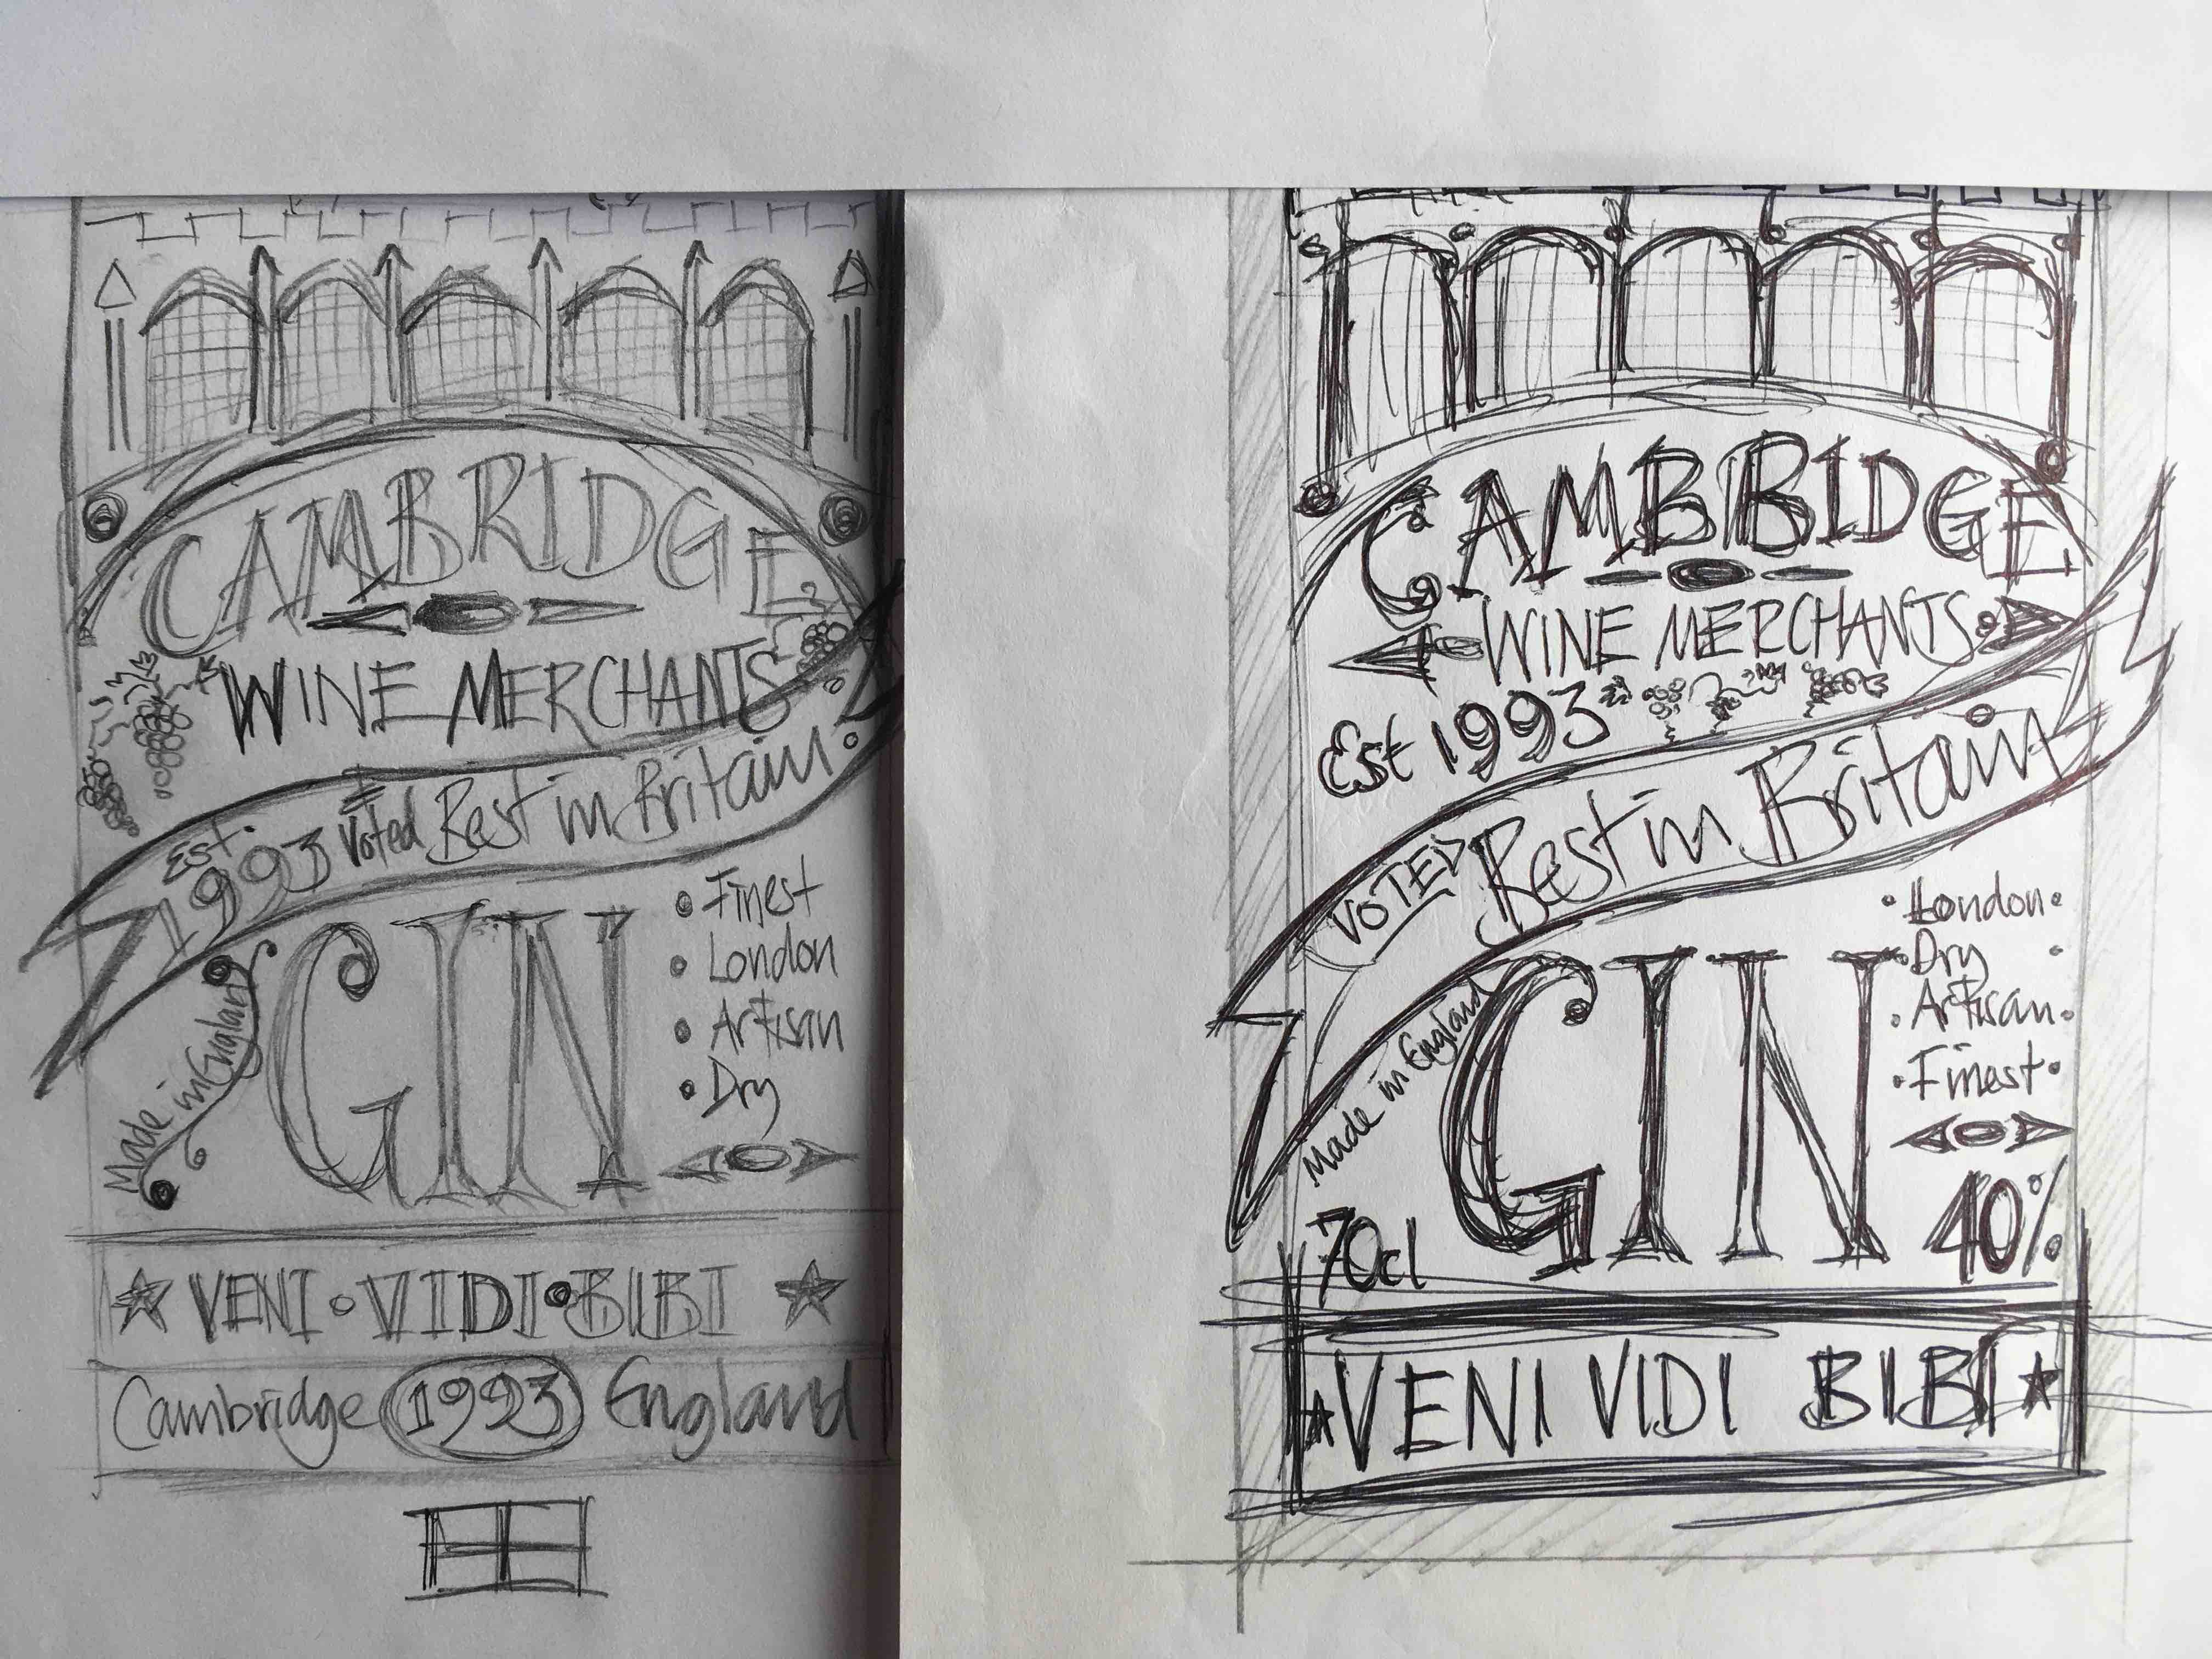 CAMBRIDGE
WINE MERCHANTS
Est. 1993 Voted Best in Britain
Made in England
GIN
• Finest
• London
• Artisan
• Dry
VENI • VIDI • BIBI
Cambridge 1993 England
CAMBBIDGE
WINE MERCHANTS
Est 1993
VOTED Best in Britain
Made in England
GIN
• London •
• Dry •
• Artisan •
• Finest •
70cl
40%
VENI VIDI BIBI